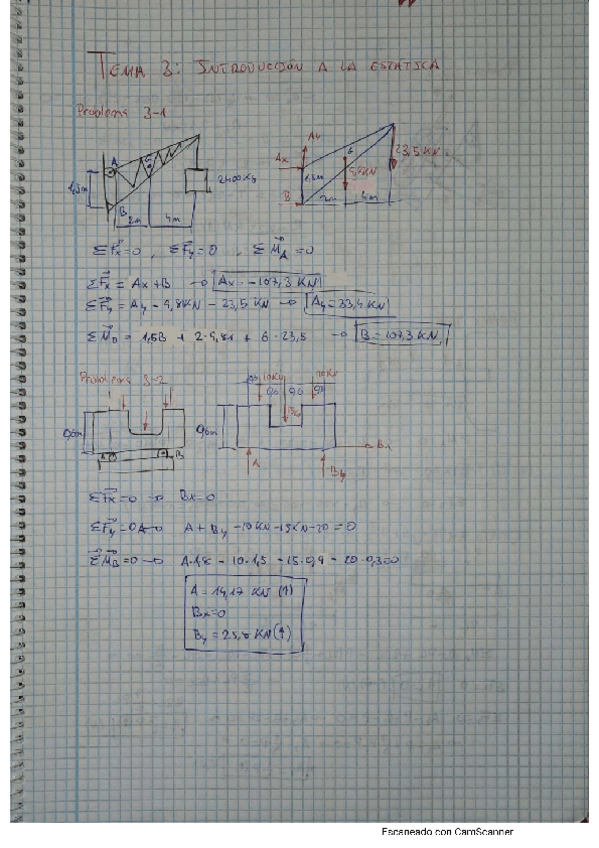 TEMA 3: INTRODUCCION A LA ESTATICA
Problema 3-1
A
G
B
1,5m
2m
4m
2400 Kg
Ay
Ax
23,5 KN
G
1,5m
B
2m
4m
ΣFx=0 , ΣFy=0 , ΣMA=0
ΣFx = Ax+B → Ax = -107,3 KN
ΣFy = Ay - 9,81KN - 23,5 KN → Ay=33,4 KN
= 1,5B + 2·9,81 + 6·23,5 → B=107,3 KN
Problema 3-2
10KN
0,6 0,6
0,6m
A
B
0,6m
A
By
Bx
ΣFx=0 → Bx=0
A + By -10KN-15KN-20 = 0
ΣMB=0 → A·1,8 - 10·1,5 - 15·0,9 - 20·0,3=0
A = 14,17 KN (↑)
Bx=0
By = 25,8 KN(↑)
Escaneado con CamScanner